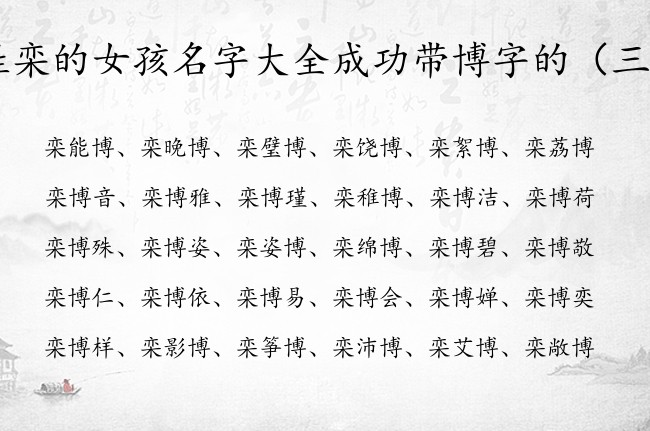 栾的女孩名字大全成功带博字的（三
栾能博、栾晚博、栾璧博、栾饶博、栾絮博、栾荔博
栾博音、栾博雅、栾博瑾、栾稚博、栾博洁、栾博荷
栾博殊、栾博姿、栾姿博、栾绵博、栾博碧、栾博敬
栾博仁、栾博依、栾博易、栾博会、栾博婵、栾博奕
栾博样、栾影博、栾筝博、栾沛博、栾艾博、栾敞博